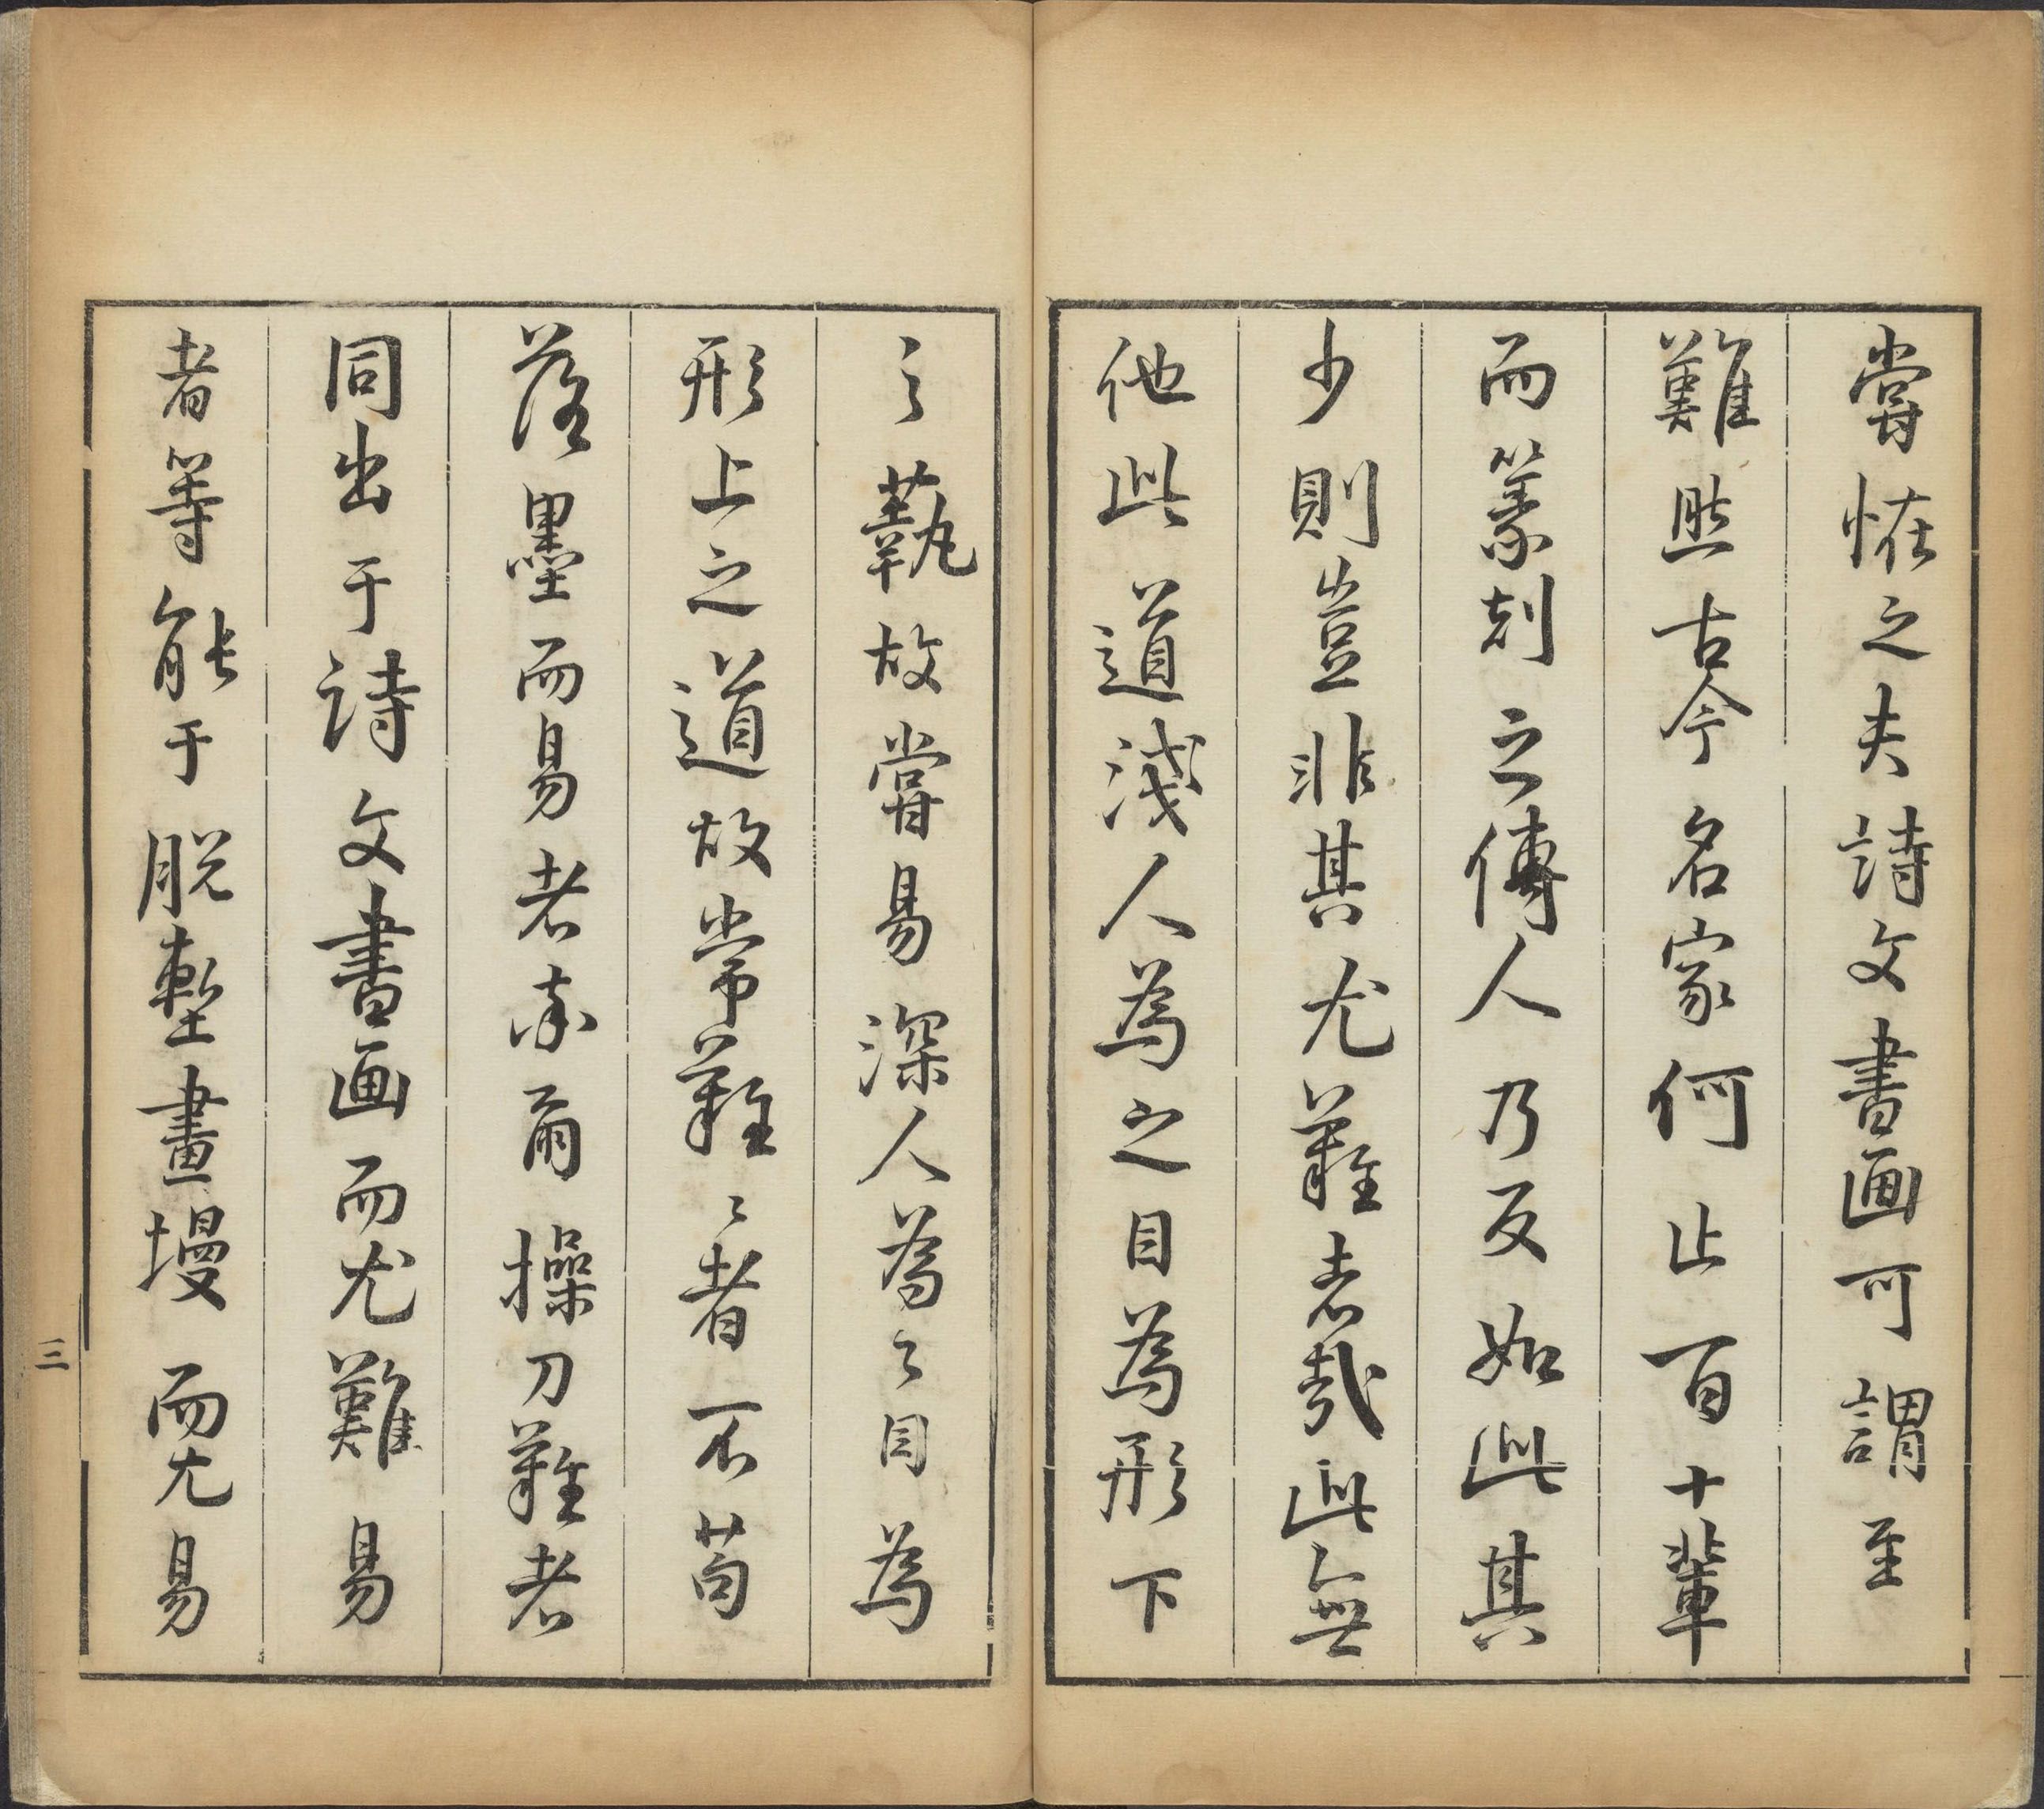 嘗恠之夫詩文書画可謂至
難然古今名家何止百十輩
而篆刻之傳人乃反如此其
少則豈非其尤難者哉此無
他此道淺人為之目為形下
之蓺故嘗易深人為之目為
形上之道故常難〻者不苟
落墨而易者率爾操刀難者
同出于詩文書画而尤難易
者等能于脫墼畫墁而尤易
三